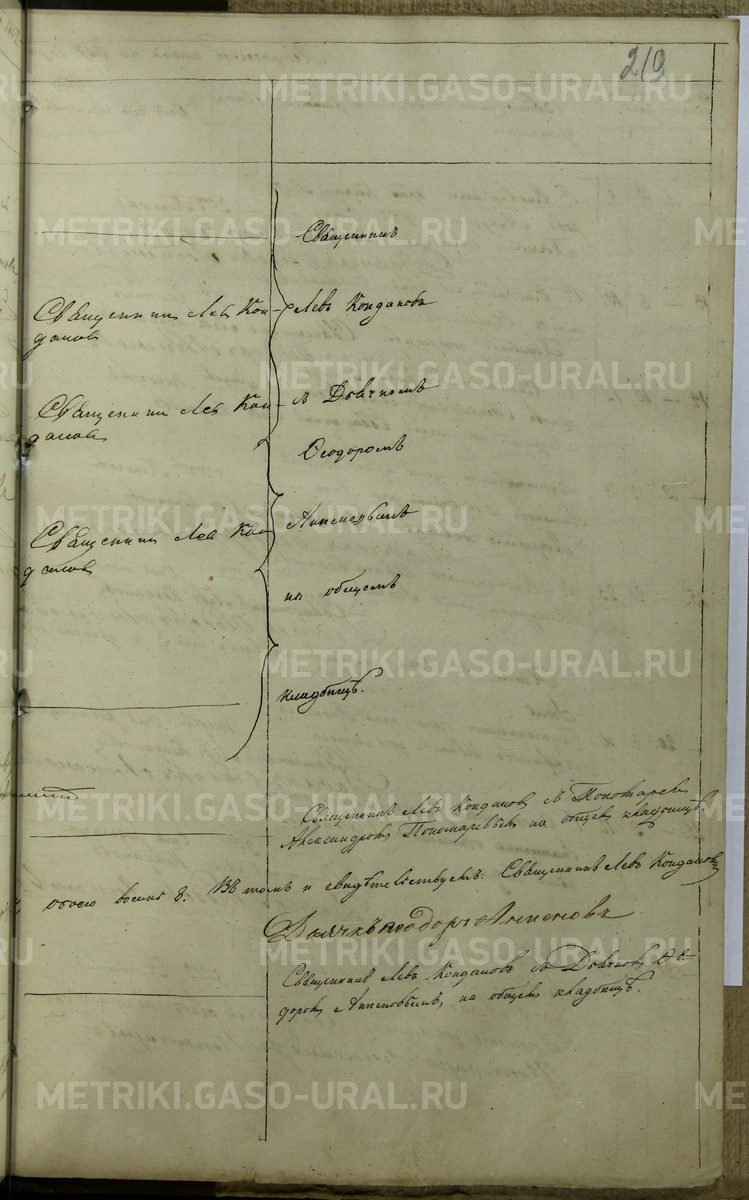 210
Священникъ
Священникъ Левъ Кон-
дановъ
Левъ Кондановъ
Священникъ Левъ Кон-
дановъ
съ Дьячкомъ
Ѳеодоромъ
Священникъ Левъ Кон-
дановъ
Антеновымъ
на общемъ
кладбищѣ.
Священникъ Левъ Кондановъ съ Пономаремъ
Александромъ Пономаревымъ на общемъ кладбищѣ.
обоего восемь 8. Въ томъ и свидѣтельствуетъ: Священникъ Левъ Кондановъ
Дьячкъ Ѳеодоръ Антеновъ
Священникъ Левъ Кондановъ съ Дьячкомъ Ѳео-
доромъ Антеновымъ, на общемъ кладбищѣ.
METRIKI.GASO-URAL.RU